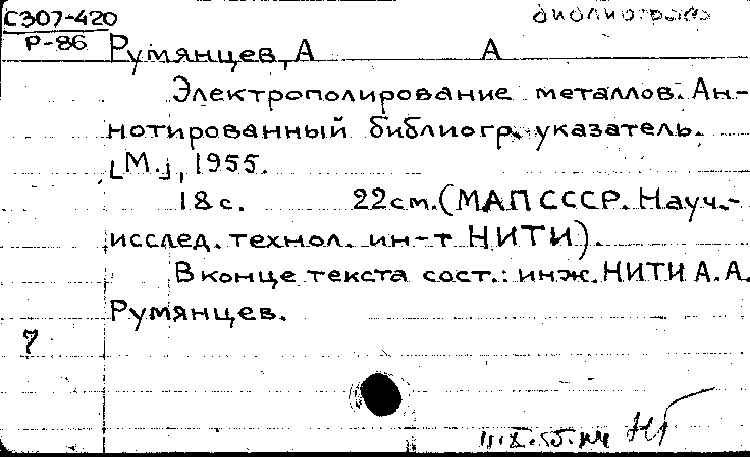 С307-420 библиограф
Р-86
Румянцев, А А
Электрополирование металлов. Ан-
нотированный библиогр. указатель.
[М.], 1955.
18 с. 22 см. (МАП СССР. Науч.-
исслед. технол. ин-т НИТИ).
В конце текста сост.: инж. НИТИ А. А.
Румянцев.
7